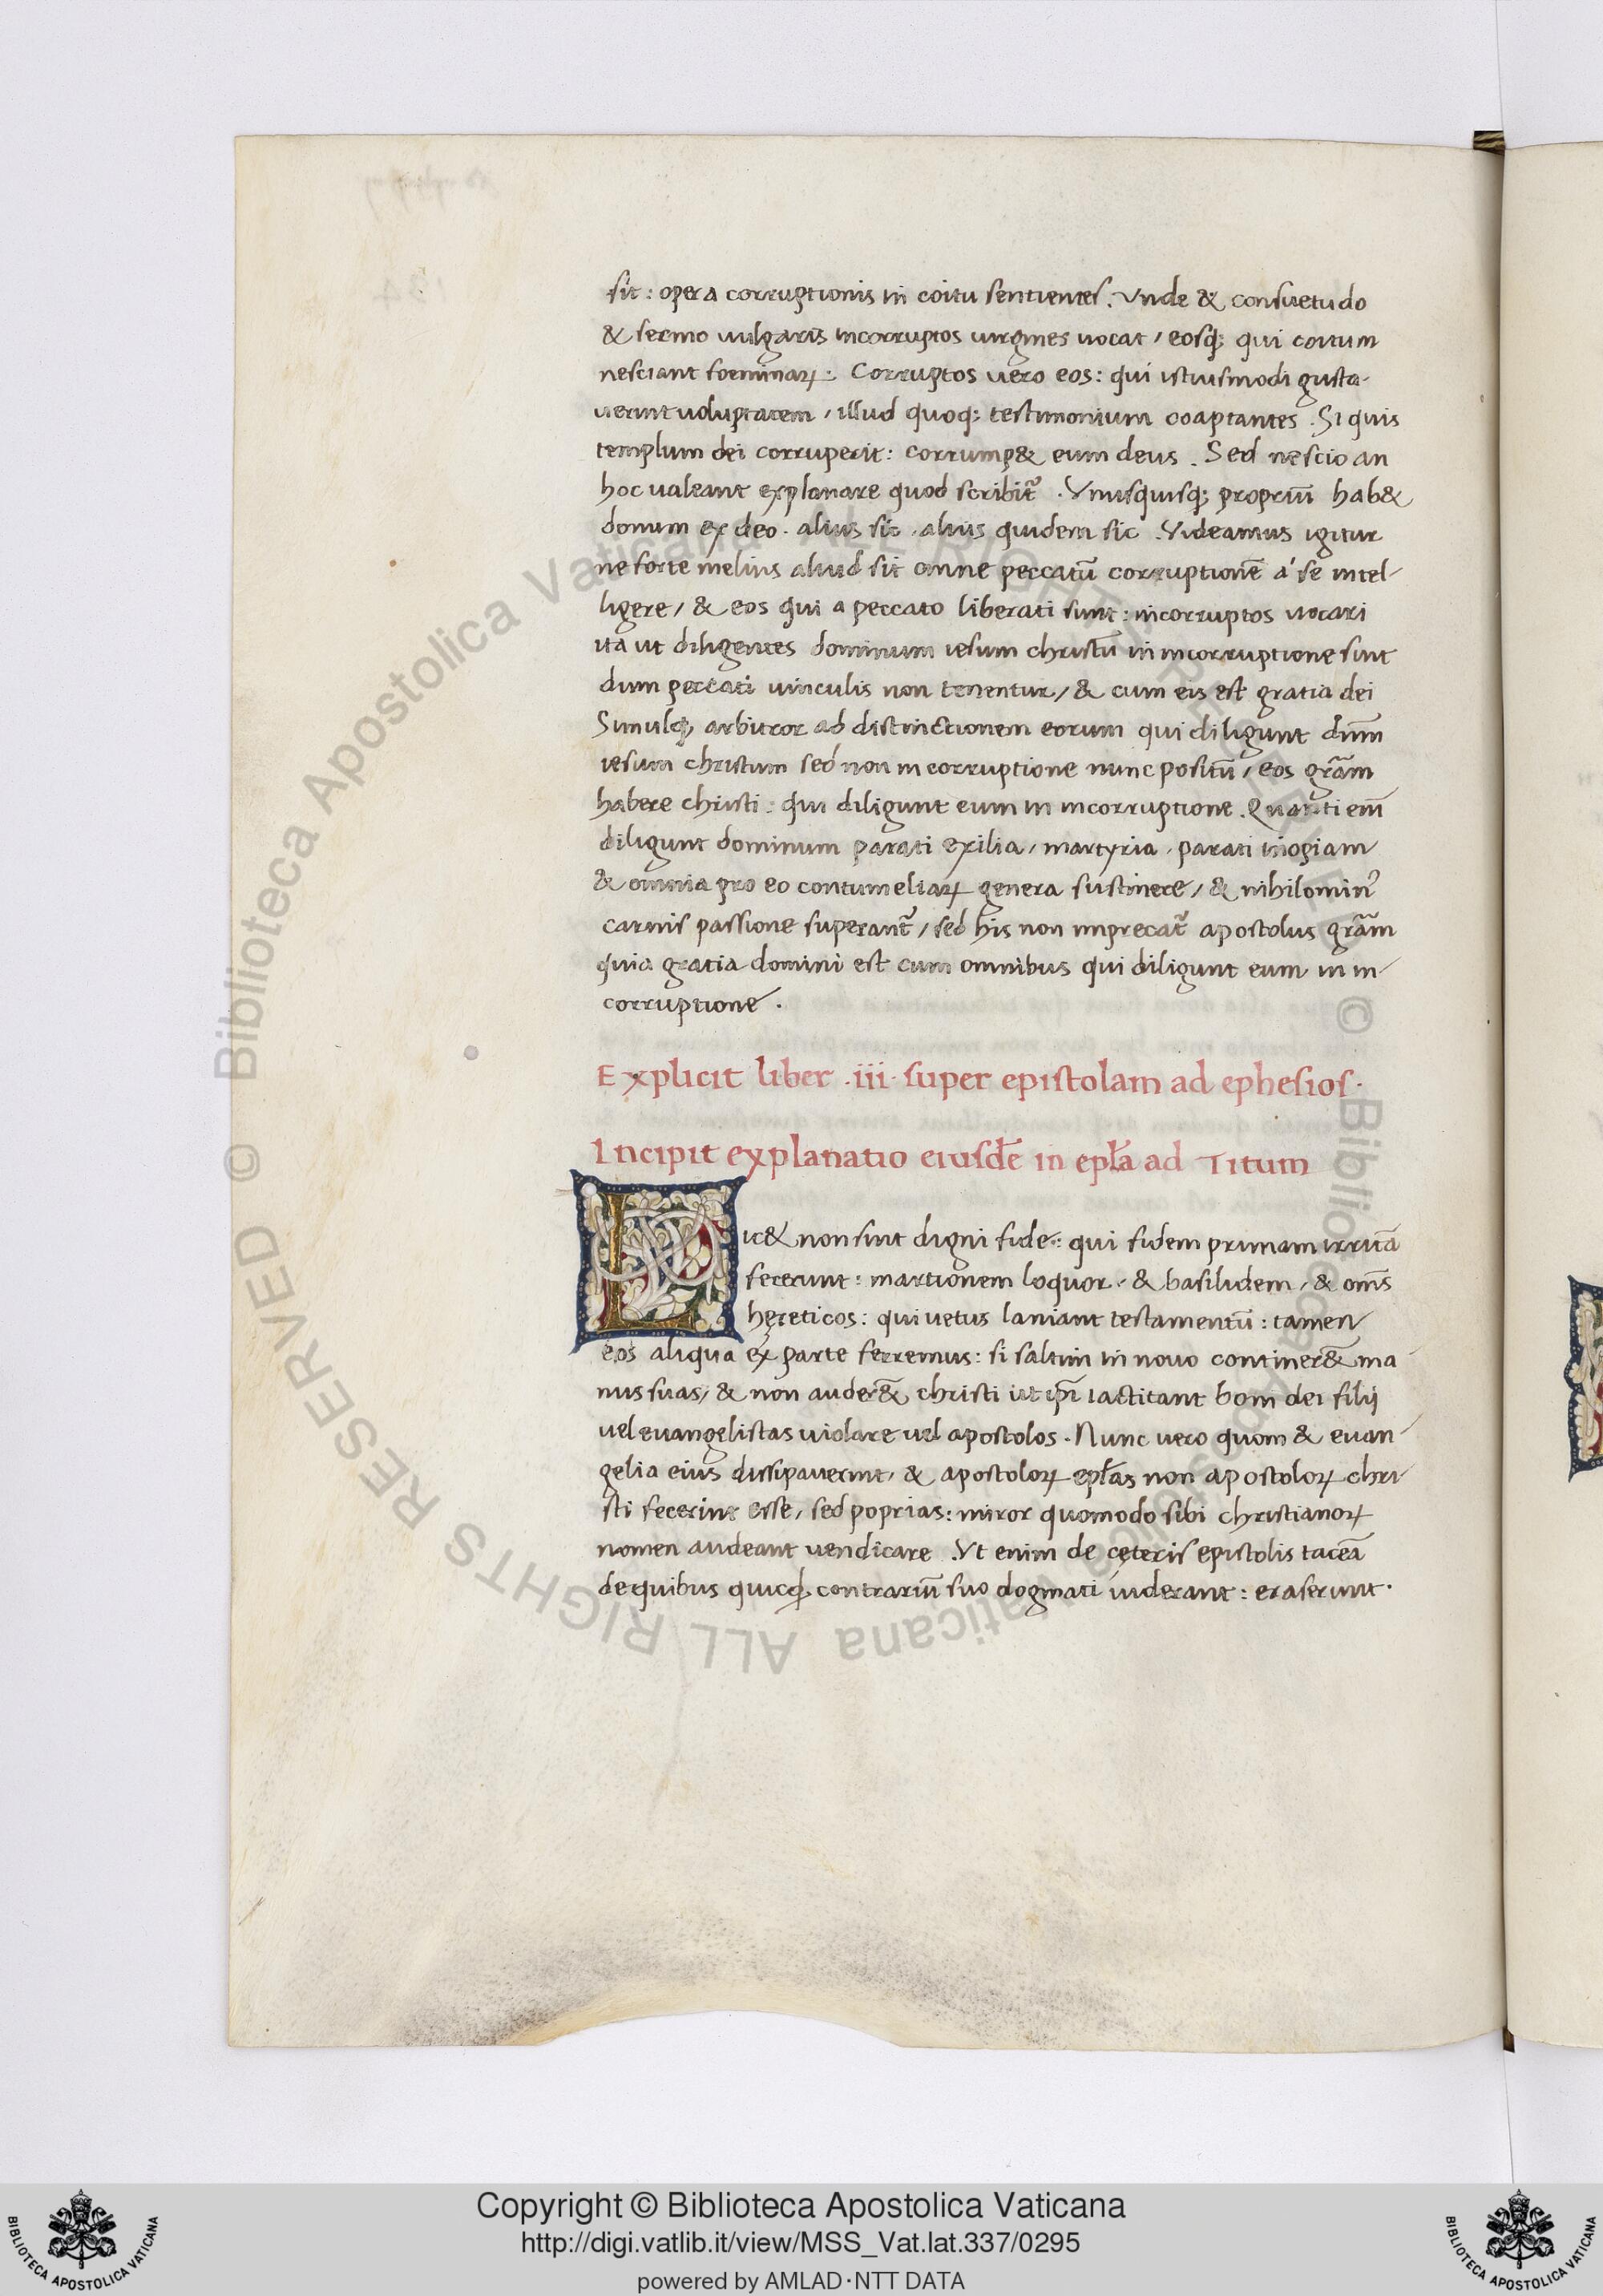 sit: opera corruptionis in coitu sentientes. Vnde & consuetudo
& sermo uulgaris incorruptos uirgines uocat / eosq; qui coitum
nesciant foeminaꝝ. Corruptos uero eos: qui istiusmodi gusta-
uerint uoluptatem / illud quoq; testimonium coaptantes. Si quis
templum dei corruperit: corrump& eum deus. Sed nescio an
hoc ualeant explanare quod scribit᷑. Vnusquisq; propriū hab&
donum ex deo. alius sic. alius quidem sic. Videamus igitur
ne forte melius aliud sit omne peccatū corruptionē a se intel-
ligere / & eos qui a peccato liberati sunt: incorruptos uocari
ita ut diligentes dominum iesum christū in incorruptione sint
dum peccati uinculis non tenentur / & cum eis est gratia dei
Simulq; arbitror ad distinctionem eorum qui diligunt dnm̄
iesum christum sed non in corruptione nunc positū / eos grām
habere christi: qui diligunt eum in incorruptione. Quanti enī
diligunt dominum parati exilia / martyria. parati inopiam
& omnia pro eo contumeliaꝝ genera sustinere / & nihilominꝰ
carnis passione superant᷑ / sed his non imprecat᷑ apostolus grām
quia gratia domini est cum omnibus qui diligunt eum in in-
corruptione.
Explicit liber .iii. super epistolam ad ephesios.
Incipit explanatio eiusdē in epłā ad Titum
Lic& non sint digni fide: qui fidem primam irritā
fecerunt: martionem loquor. & basilidem / & omīs
hęreticos: qui uetus laniant testamentū: tamen
eos aliqua ex parte ferremus: si saltim in nouo continer&̄ ma-
nus suas / & non auder&̄ christi ut ip̄i iactitant boni dei filij
uel euangelistas uiolare uel apostolos. Nunc uero quom & euan-
gelia eius dissipauerint / & apostoloꝝ epłas non apostoloꝝ chri-
sti fecerint esse / sed poprias: miror quomodo sibi christianoꝝ
nomen audeant uendicare. Vt enim de cęteris epistolis taceā
de quibus quicqd contrariū suo dogmati uiderant: eraserunt.
© Biblioteca Apostolica Vaticana ALL RIGHTS RESERVED
© Biblioteca Apostolica Vaticana ALL RIGHTS RESERVED
BIBLIOTECA APOSTOLICA VATICANA
Copyright © Biblioteca Apostolica Vaticana
http://digi.vatlib.it/view/MSS_Vat.lat.337/0295
powered by AMLAD·NTT DATA
BIBLIOTECA APOSTOLICA VATICANA